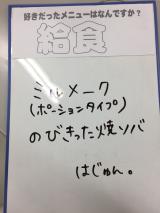 好きだったメニューはなんですか?
給食
ミルメーク
(ポーションタイプ)
のびきった焼ソバ
はじゅん。